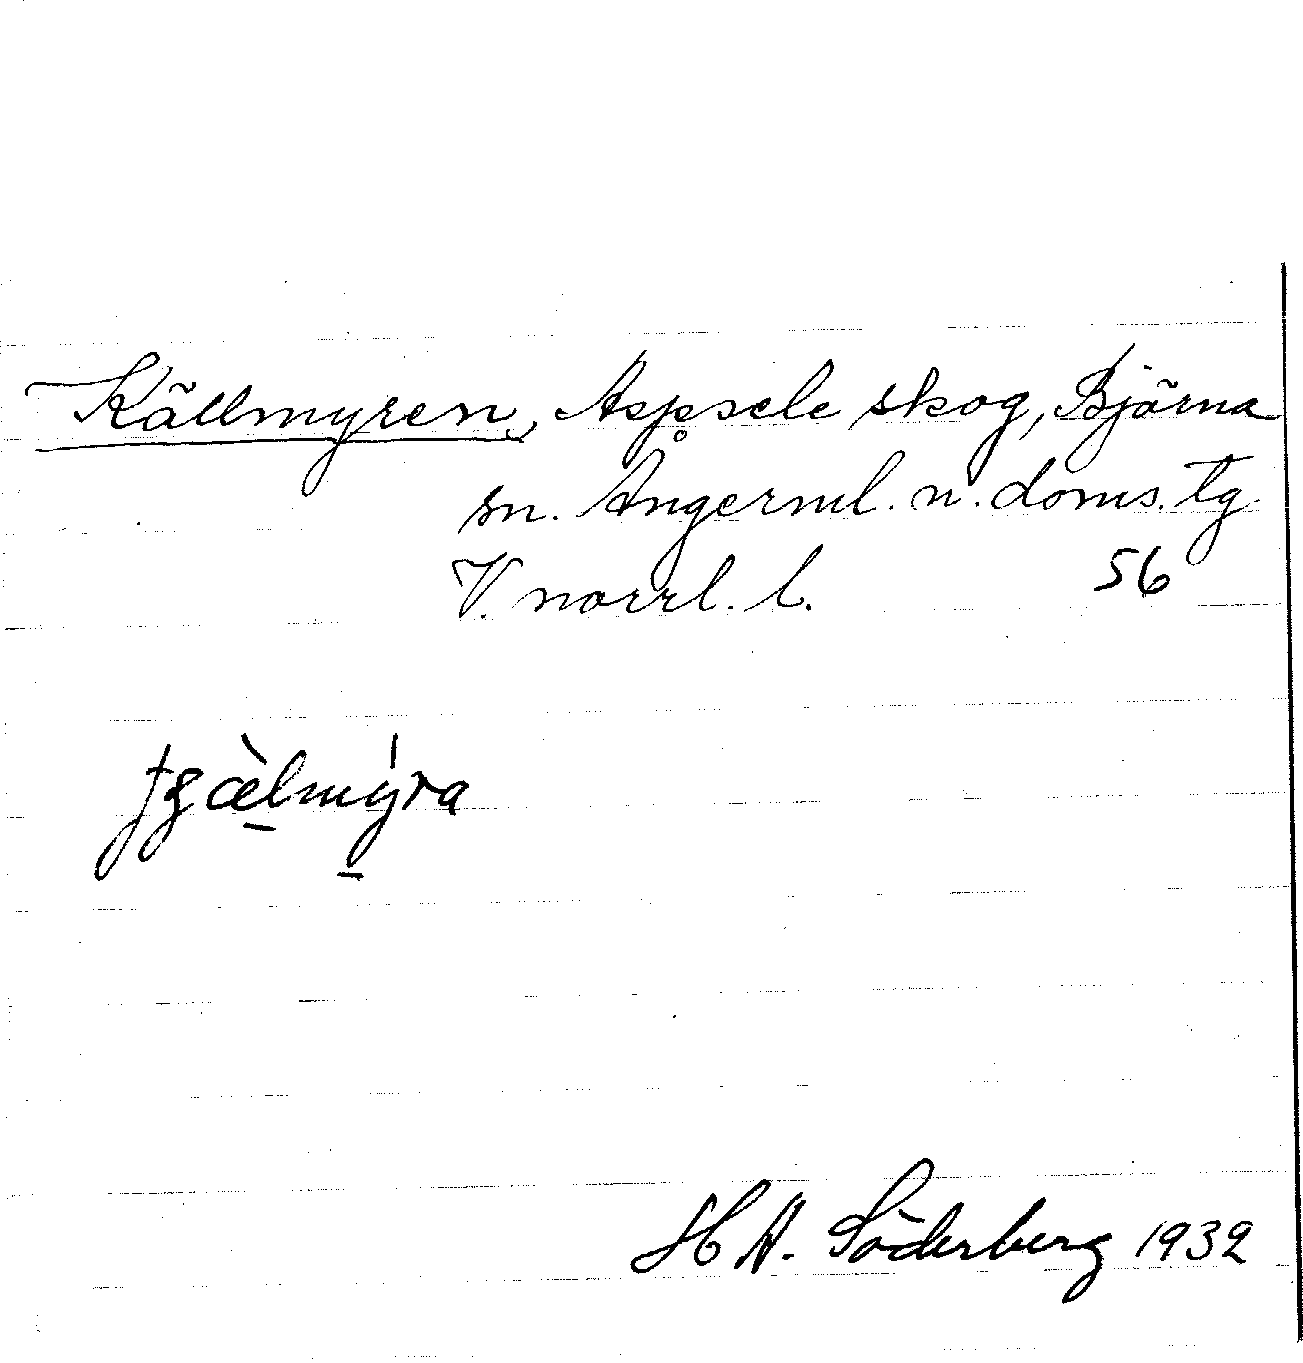 Källmyren, Aspsele skog, Björna
sn. Ångerml. n. doms. tg
V. norrl. l. 56
H A. Söderberg 1932